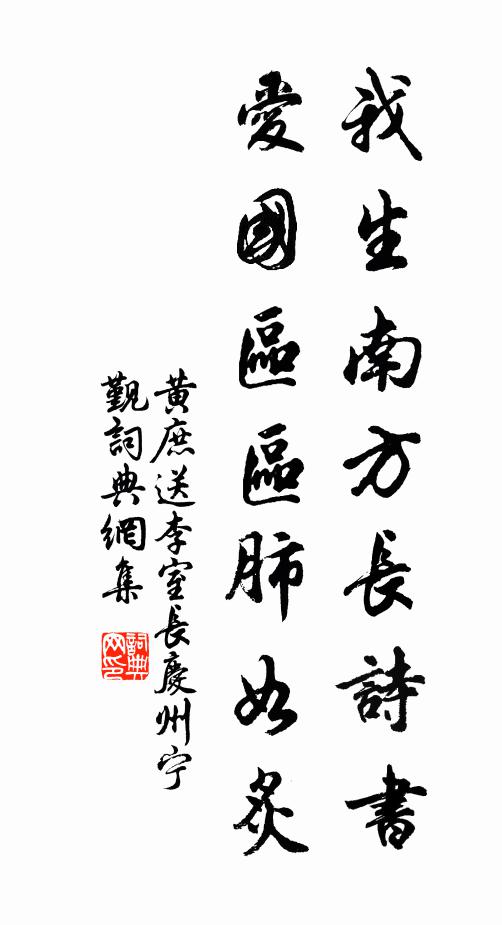 我生南方長詩書
愛國區區肺如炙
黃庶送李室長慶州宁
觀詞典網集
詞典
网印